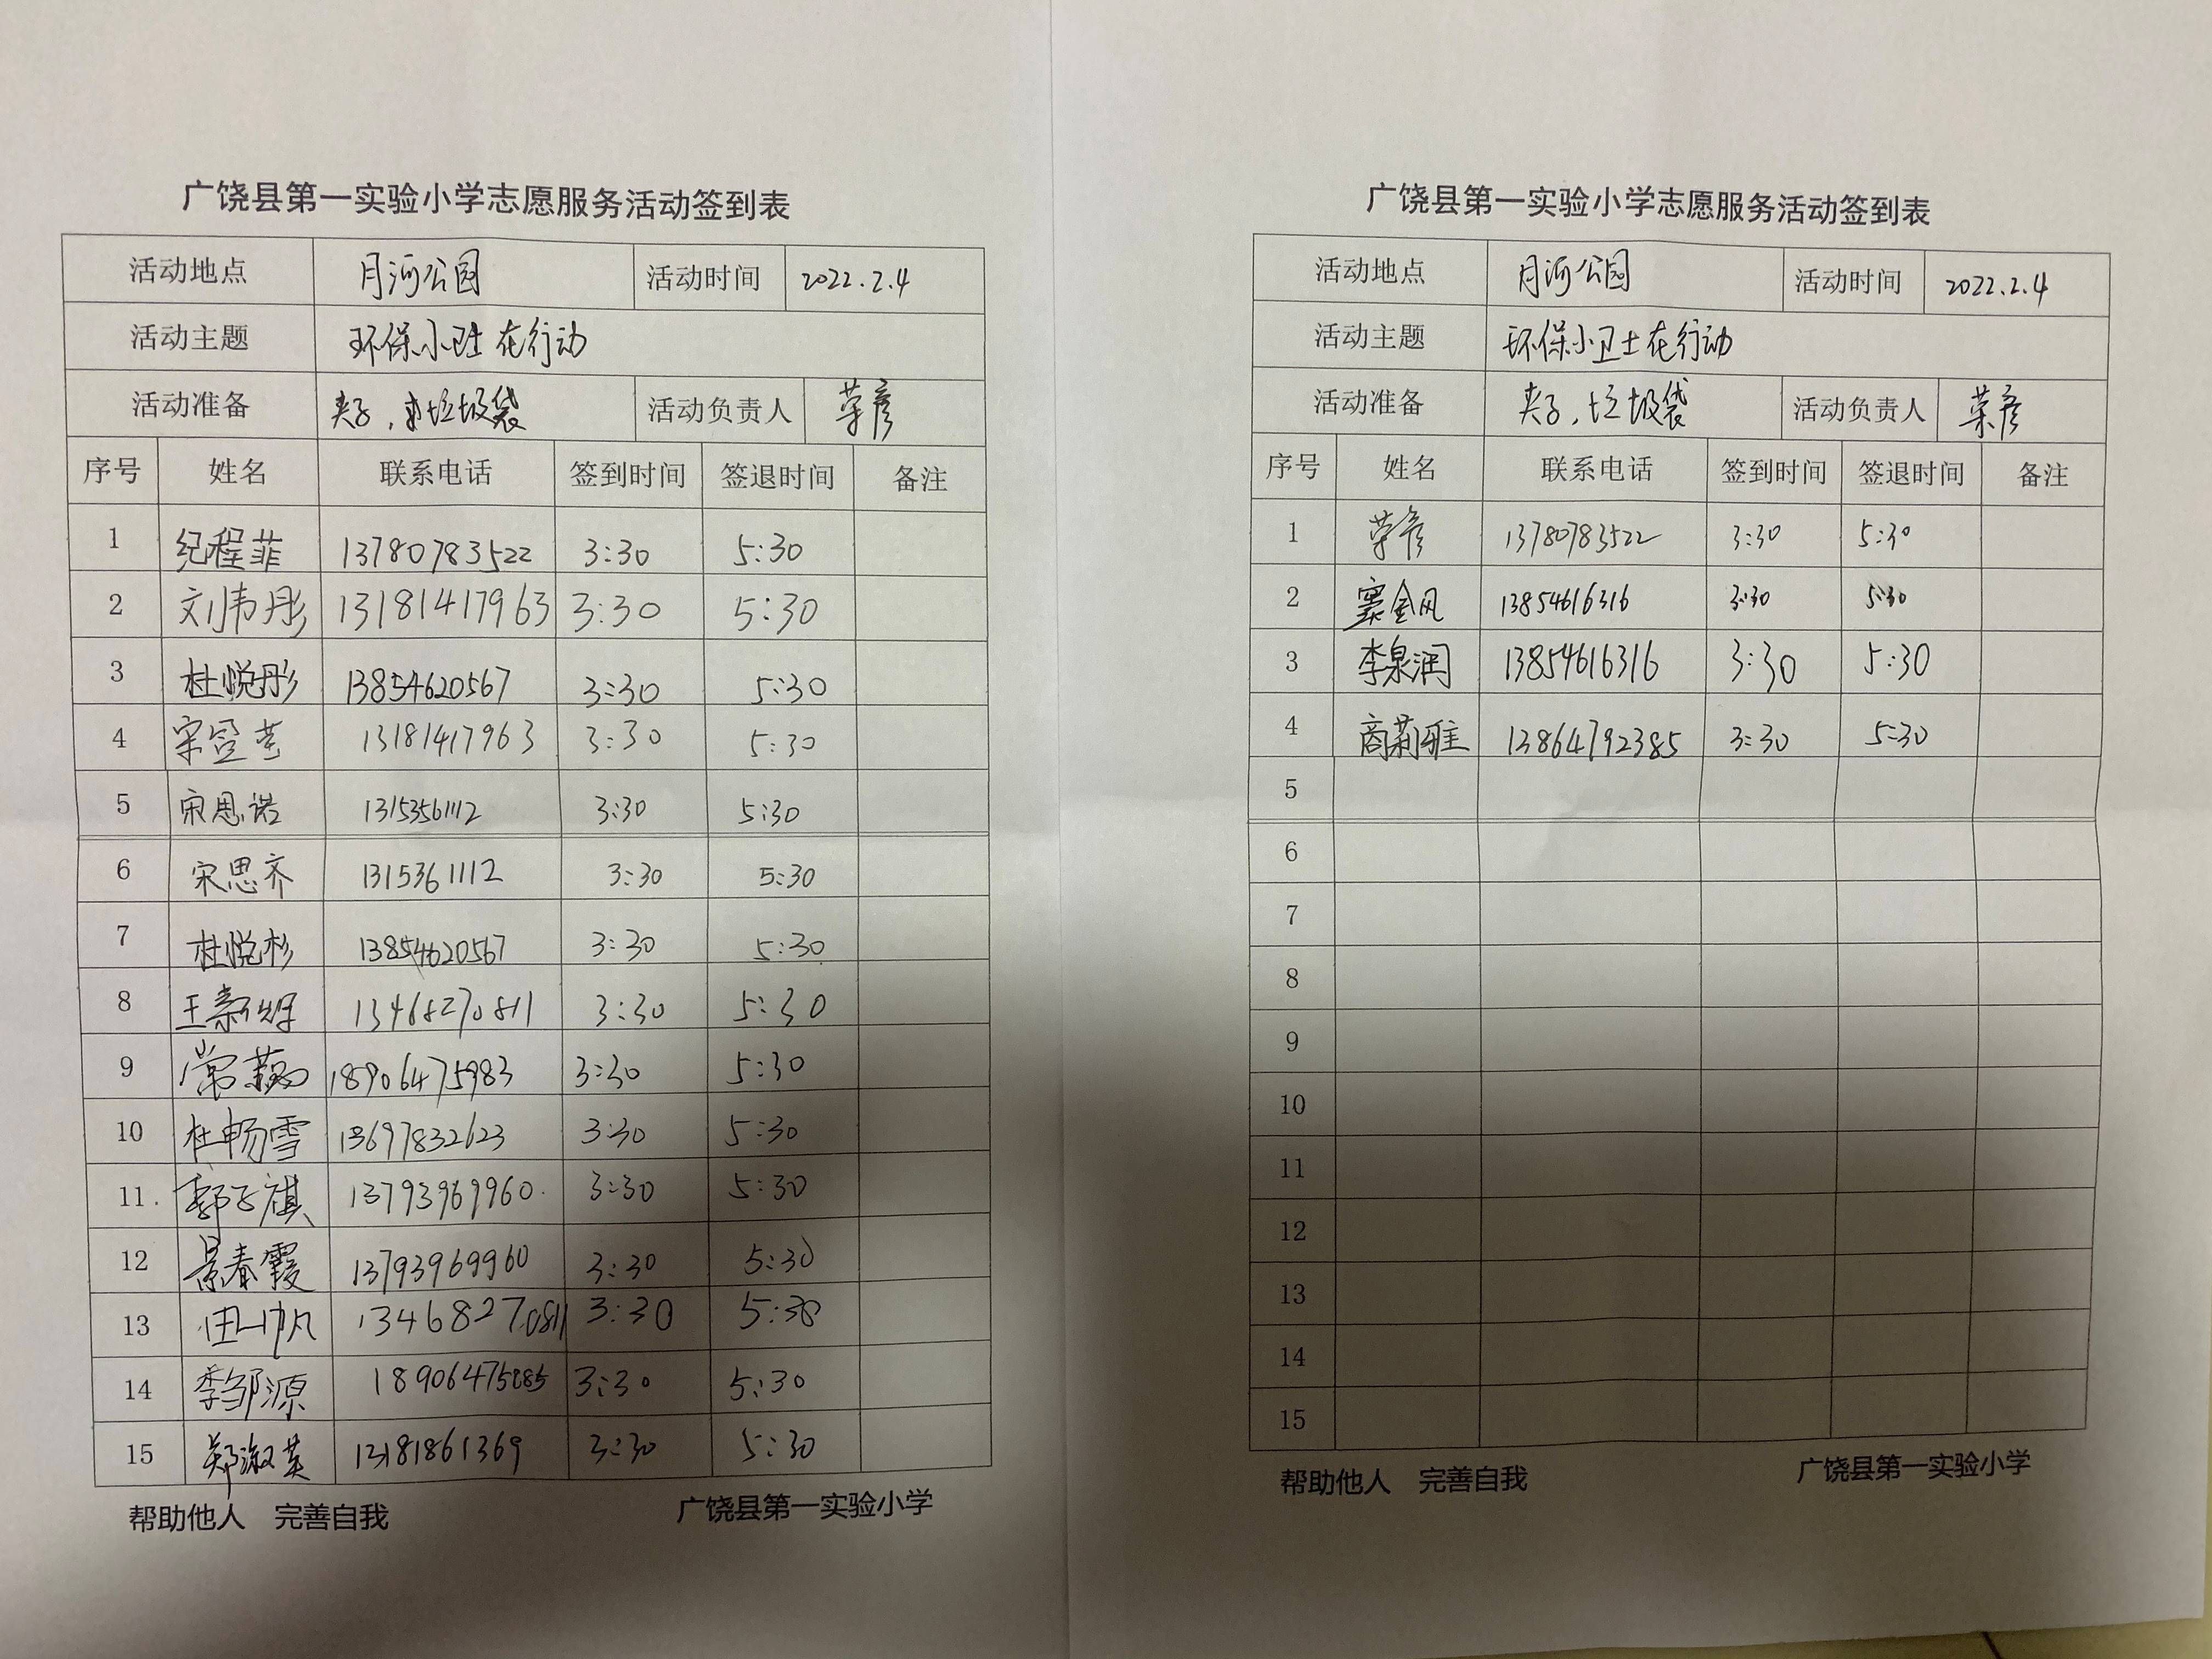 广饶县第一实验小学志愿服务活动签到表
活动地点 月河公园 活动时间 2022.2.4
活动主题 环保小卫士在行动
活动准备 夹子，垃圾袋 活动负责人 荣彦
序号 姓名 联系电话 签到时间 签退时间 备注
1 纪程菲 13780783522 3:30 5:30
2 刘韦彤 13181417963 3:30 5:30
3 杜悦彤 13854620567 3:30 5:30
4 宋 13181417963 3:30 5:30
5 宋思诺 13153561112 3:30 5:30
6 宋思齐 1315361112 3:30 5:30
7 杜悦杉 13854620567 3:30 5:30
8 王新 13468270811 3:30 5:30
9 常 18906475983 3:30 5:30
10 杜畅雪 13697832623 3:30 5:30
11 郭子祺 13793969960 3:30 5:30
12 景春霞 13793969960 3:30 5:30
13 13468270811 3:30 5:30
14 李邹源 3:30 5:30
15 郑淑英 13181861369 3:30 5:30
帮助他人 完善自我 广饶县第一实验小学
广饶县第一实验小学志愿服务活动签到表
活动地点 月河公园 活动时间 2022.2.4
活动主题 环保小卫士在行动
活动准备 夹子，垃圾袋 活动负责人 荣彦
序号 姓名 联系电话 签到时间 签退时间 备注
1 荣彦 13780783522 3:30 5:30
2 窦金凤 13854616316 3:30 5:30
3 李泉润 13854616316 3:30 5:30
4 商莉雅 13864792385 3:30 5:30
5
6
7
8
9
10
11
12
13
14
15
帮助他人 完善自我 广饶县第一实验小学